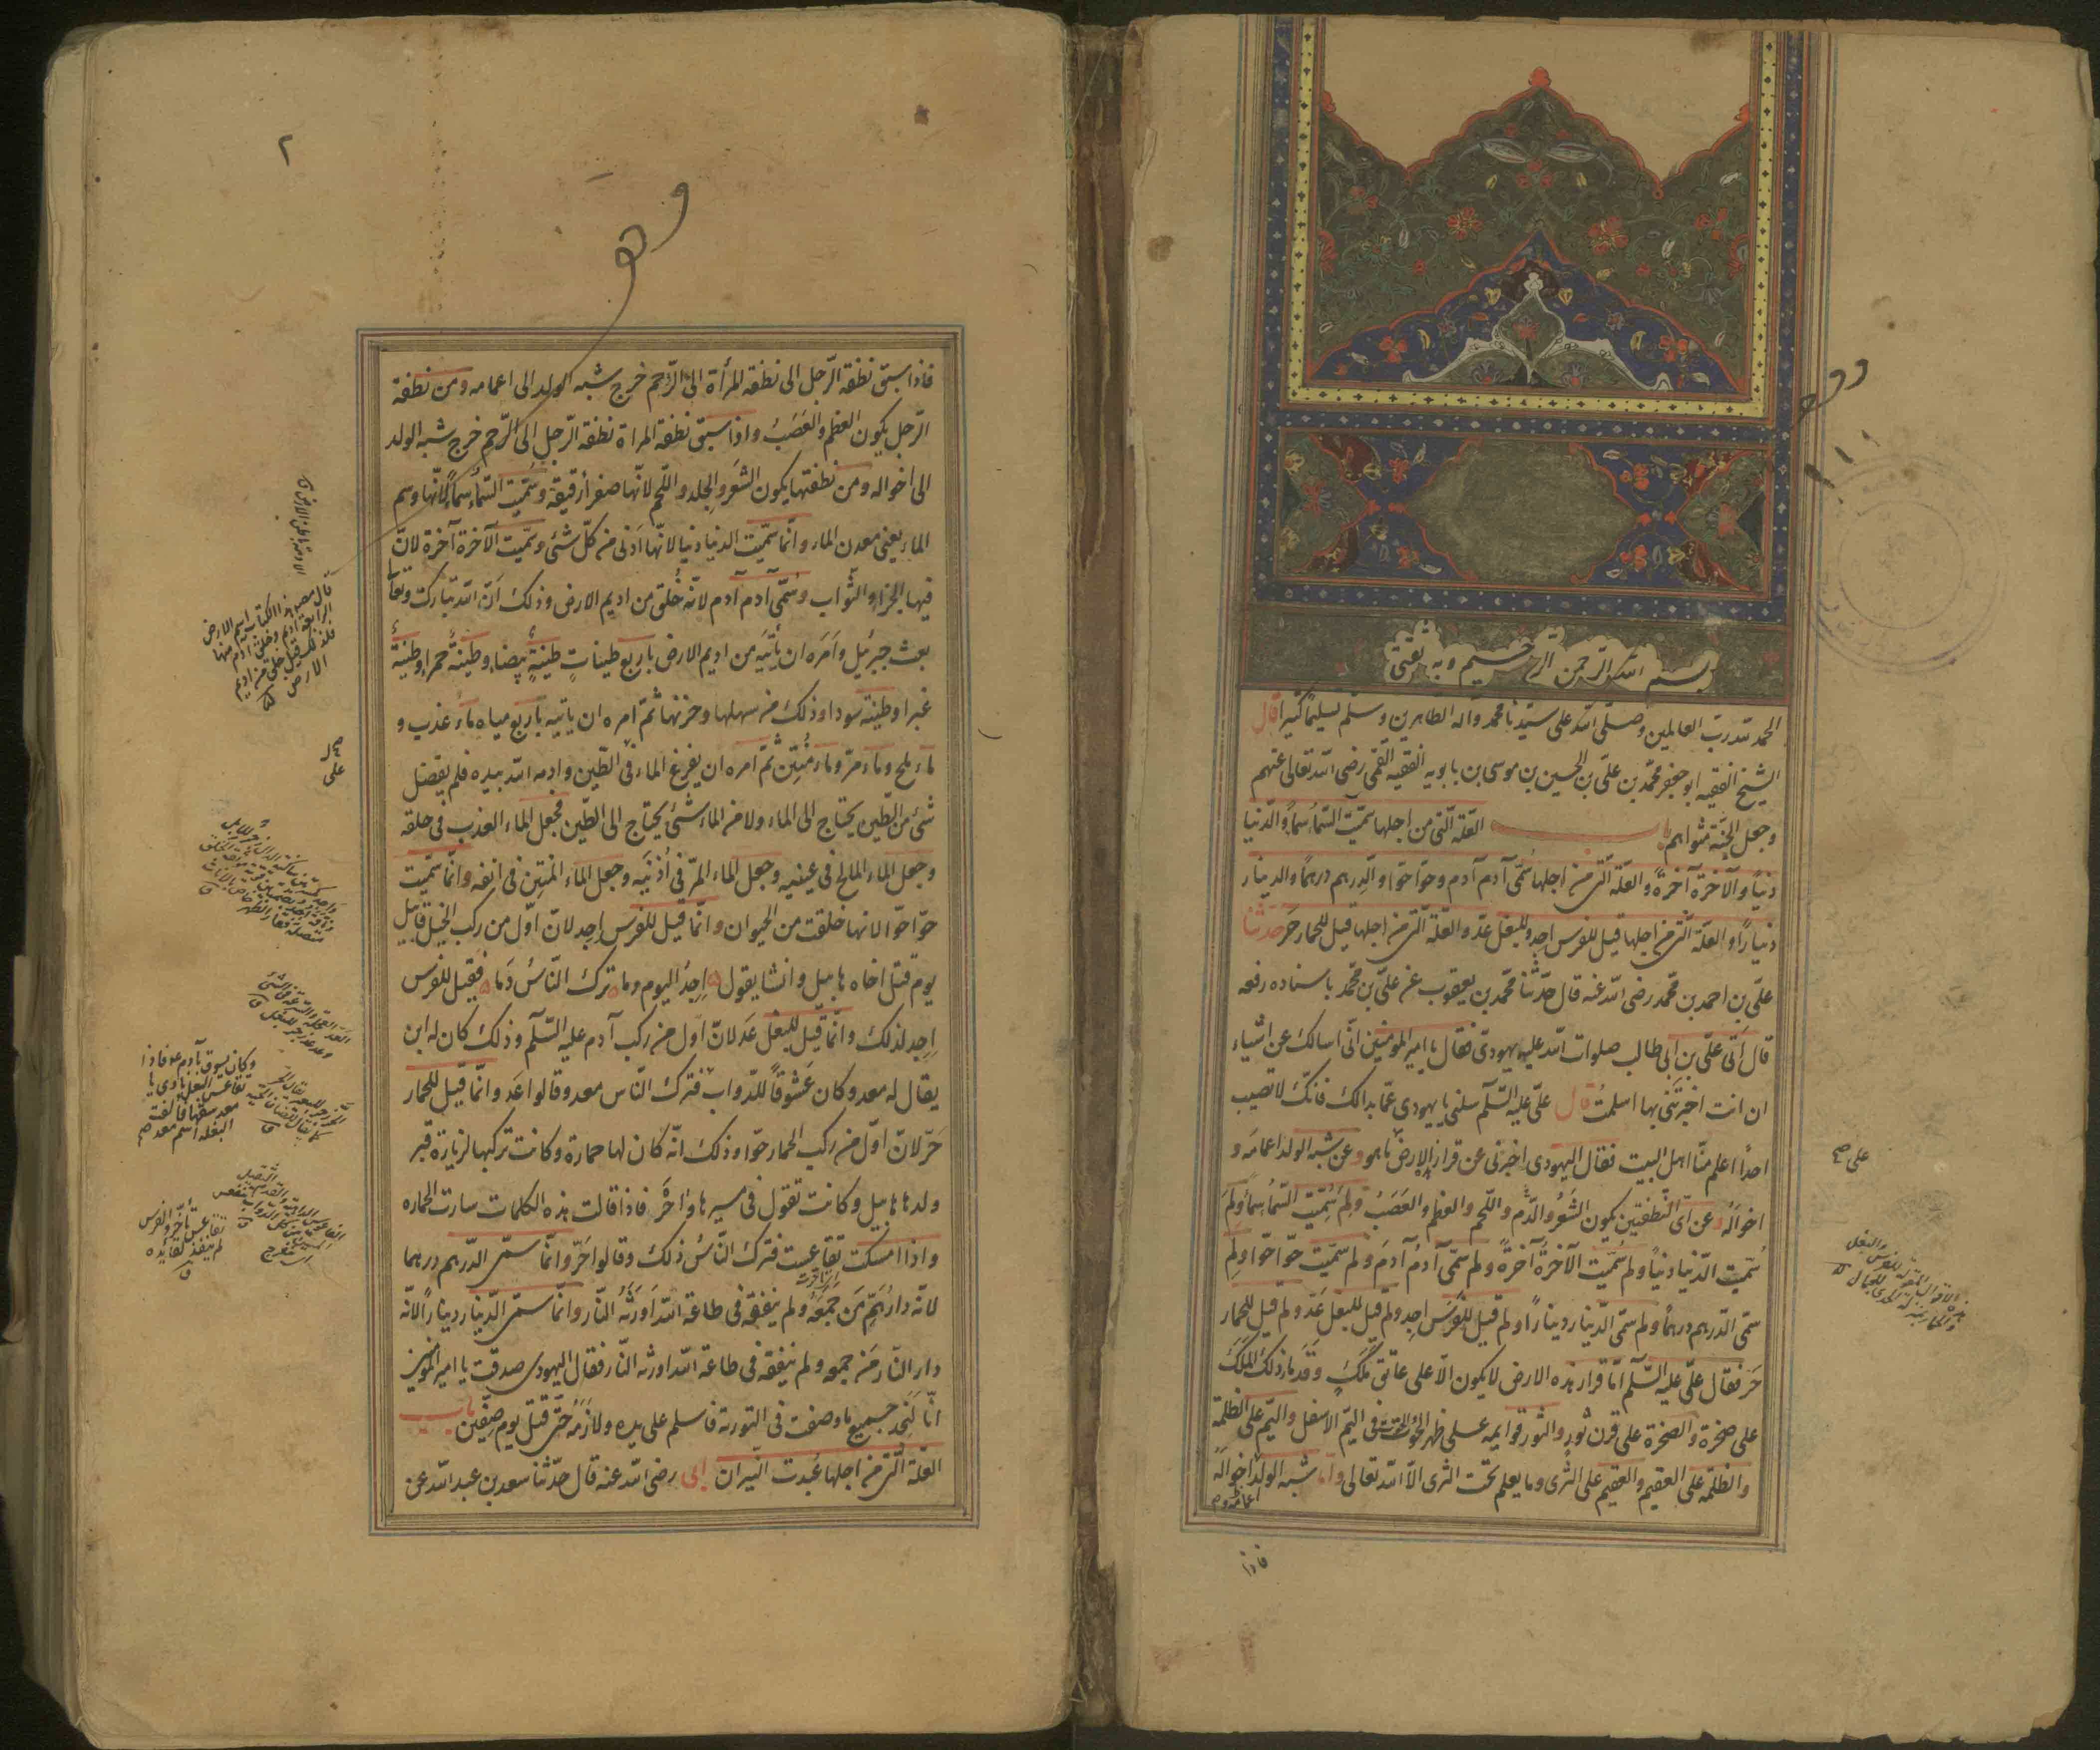 بسم الله الرحمن الرحيم وبه ثقتي
الحمد لله رب العالمين وصلى الله على سيدنا محمد وآله الطاهرين وسلم تسليما كثيرا قال
الشيخ الفقيه ابو جعفر محمد بن علي بن الحسين بن موسى بن بابويه الفقيه القمي رضى الله تعالى عنهم
وجعل الجنة مثواهم باب العلة التي من اجلها سميت السماء سماء والدنيا
دنيا والآخرة آخرة والعلة التي من اجلها سمى آدم آدم وحوا حوا والدرهم درهما والدينار
دينارا والعلة التي من اجلها قيل للفرس اجد وللبغل عد والعلة التي من اجلها قيل للحمار حر حدثنا
على بن احمد بن محمد رضى الله عنه قال حدثنا محمد بن يعقوب عن على بن محمد باسناده رفعه
قال اتى على بن ابى طالب صلوات الله عليه يهودى فقال يا امير المؤمنين انى اسالك عن اشياء
ان انت اخبرتنى بها اسلمت قال على عليه السلم سلنى يا يهودى عما بدا لك فانك لا تصيب
احدا اعلم منا اهل البيت فقال اليهودى اخبرنى عن قرار هذه الارض ما هو وعن شبه الولد اعمامه و
اخواله وعن اى النطفتين يكون الشعر والدم واللحم والعظم والعصب ولم سميت السماء سماء ولم
سميت الدنيا دنيا ولم سميت الآخرة آخرة ولم سمى آدم آدم ولم سميت حوا حوا ولم
سمى الدرهم درهما ولم سمى الدينار دينارا ولم قيل للفرس اجد ولم قيل للبغل عد ولم قيل للحمار
حر فقال على عليه السلم اما قرار هذه الارض لا يكون الا على عاتق ملك وقدما ذلك الملك
على صخرة والصخرة على قرن ثور والثور قوايمه على ظهر الحوت فى اليم الاسفل واليم على الظلمة
والظلمة على العقيم والعقيم على الثرى وما يعلم تحت الثرى الا الله تعالى واما شبه الولد اخواله
اعمامه و
فاذا
على
٢
فاذا سبق نطفة الرجل الى نطفة المرأة الى الرحم خرج شبه الولد الى اعمامه ومن نطفة
الرجل يكون العظم والعصب واذا سبق نطفة المراة نطفة الرجل الى الرحم خرج شبه الولد
الى اخواله ومن نطفتها يكون الشعر والجلد واللحم لانها صفرا رقيقة وسميت السماء سماء لانها وسم
الماء يعنى معدن الماء وانما سميت الدنيا دنيا لانها ادنى من كل شئ وسميت الآخرة آخرة لان
فيها الجزاء والثواب وسمى آدم آدم لانه خلق من اديم الارض وذلك ان الله تبارك وتعالى
بعث جبرئيل وامره ان يأتيه من اديم الارض باربع طينات طينة بيضاء وطينة حمراء وطينة
غبرا وطينة سودا وذلك من سهلها وحزنها ثم امره ان ياتيه باربع مياه ماء عذب و
ماء ملح وماء مر وماء منتن ثم امره ان يفرغ الماء فى الطين وادمه الله بيده فلم يفضل
شئ من الطين يحتاج الى الماء ولا من الماء شئ يحتاج الى الطين فجعل الماء العذب فى حلقه
وجعل الماء المالح فى عينيه وجعل الماء المر فى اذنيه وجعل الماء المنتن فى انفه وانما سميت
حوا حوا لانها خلقت من الحيوان وانما قيل للفرس اجد لان اول من ركب الخيل قابيل
يوم قتل اخاه هابيل وانشا يقول اجد اليوم وما ترك الناس دما فقيل للفرس
اجد لذلك وانما قيل للبغل عد لان اول من ركب آدم عليه السلم وذلك كان له ابن
يقال له معد وكان عشوقا للدواب فترك الناس معد وقالوا عد وانما قيل للحمار
حر لان اول من ركب الحمار حوا وذلك انه كان لها حمارة وكانت تركبها لزيارة قبر
ولدها هابيل وكانت تقول فى مسيرها واحره فاذا قالت هذه الكلمات سارت الحماره
واذا امسكت تقاعست فترك الناس ذلك وقالوا حر وانما سمى الدرهم درهما
لانه دار هم من جمعه ولم ينفقه فى طاعة الله اورثه النار وانما سمى الدينار دينارا لانه
دار النار من جمعه ولم ينفقه فى طاعة الله اورثه النار فقال اليهودى صدقت يا امير المؤمنين
انا لنجد جميع ما وصفت فى التورية فاسلم على يده ولازمه حتى قتل يوم صفين باب
العلة التي من اجلها عبدت النيران ابى رضى الله عنه قال حدثنا سعد بن عبد الله عن
على
وكان يسوق بآدم ع فاذا